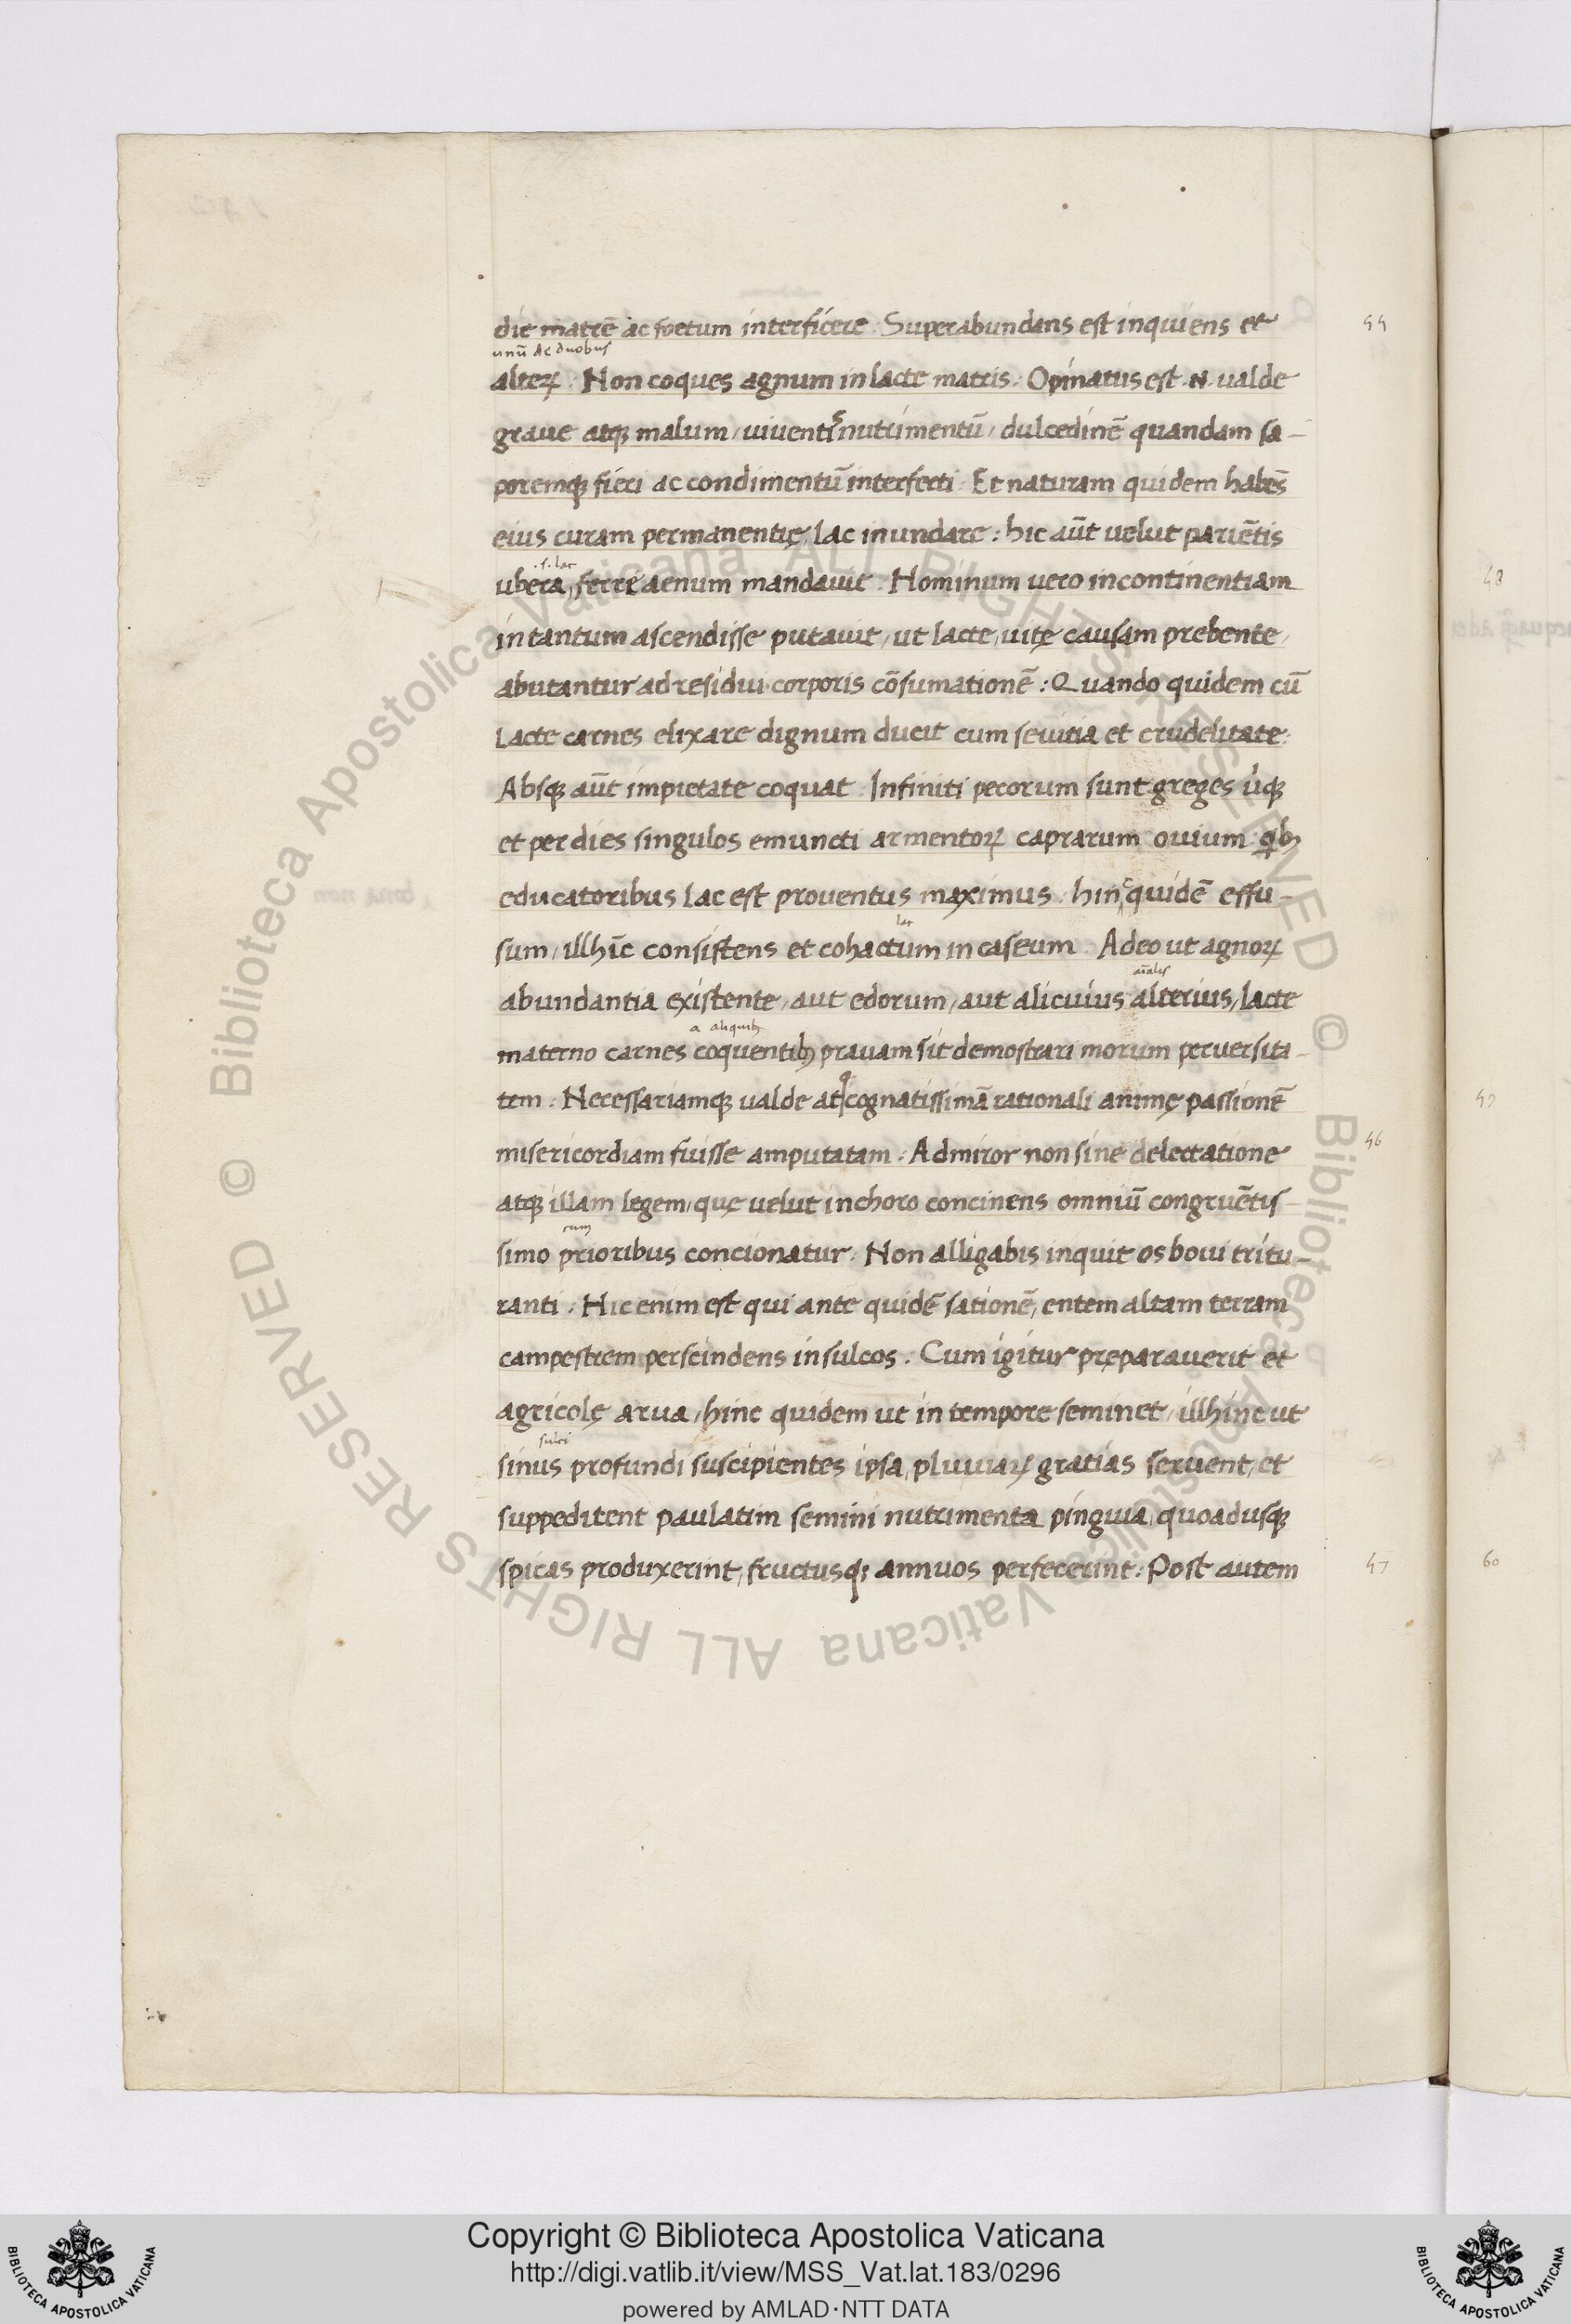 die matrē ac foetum interficere. Superabundans est inquiens et
unū ac duobus
alteꝝ. Non coques agnum in lacte matris. Opinatus est .N. ualde
graue atqꝫ malum, uiuentis nutrimentū, dulcedinē quandam sa-
poremqꝫ fieri ac condimentū interfecti. Et naturam quidem habēs
eius curam permanentię, lac inundare: hic aūt uelut pariētis
.s. lac
ubera, ferre aenum mandauit. Hominum uero incontinentiam
in tantum ascendisse putauit, ut lacte, uitę causam prebente,
abutantur ad residui corporis cōsumationē: Quando quidem cū
Lacte carnes elixare dignum ducit cum seuitia et crudelitate.
Absqꝫ aūt impietate coquat. Infiniti pecorum sunt greges
et per dies singulos emuncti armentoꝝ caprarum ouium
educatoribus lac est prouentus maximus. hinc quidē effu-
lac
sum, illhīc consistens et cohactum in caseum. Adeo ut agnoꝝ
aīalis
abundantia existente, aut edorum, aut alicuius alterius, lacte
a aliquibꝫ
materno carnes coquentibꝫ prauam sit demostrari morum peruersita-
tem. Necessariamqꝫ ualde atqꝫ cognatissimā rationali animę passionē
misericordiam fuisse amputatam. Admiror non sine delectatione
atqꝫ illam legem, quę uelut in choro concinens omniū congruētis-
cum
simo prioribus concionatur. Non alligabis inquit os boui tritu-
ranti. Hic enim est qui ante quidē sationē, entem altam terram
campestrem perscindens in sulcos. Cum igitur pręparauerit et
agricolę arua, hinc quidem ut in tempore seminet, illhinc ut
sulci
sinus profundi suscipientes ipsa, pluuiaꝝ gratias seruent, et
suppeditent paulatim semini nutrimenta pinguia, quoadusqꝫ
spicas produxerint, fructusqꝫ annuos perfecerint. Post autem
46
47
60
© Biblioteca Apostolica Vaticana ALL RIGHTS RESERVED © Biblioteca Apostolica Vaticana ALL RIGHTS RESERVED
Copyright © Biblioteca Apostolica Vaticana
http://digi.vatlib.it/view/MSS_Vat.lat.183/0296
powered by AMLAD·NTT DATA
BIBLIOTECA APOSTOLICA VATICANA
BIBLIOTECA APOSTOLICA VATICANA